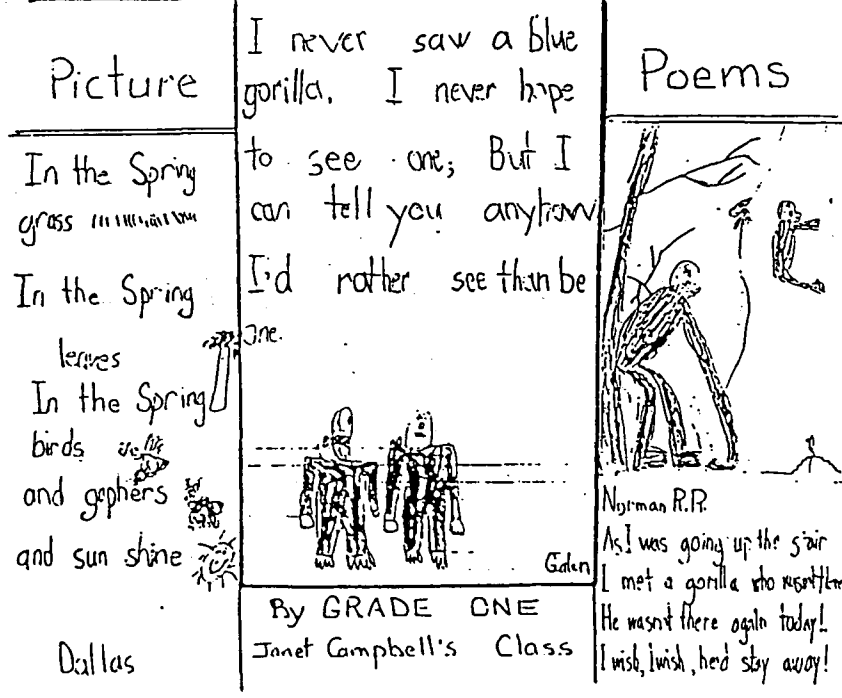 Picture
In the Spring
grass
In the Spring
leaves
In the Spring
birds
and gophers
and sun shine
Dallas
I never saw a blue
gorilla. I never hope
to see one; But I
can tell you anyhow
I'd rather see than be
one.
Galen
By GRADE ONE
Janet Campbell's Class
Poems
Norman R.R.
As I was going up the stair
I met a gorilla who
He wasn't there again today!
I wish, I wish, he'd stay away!